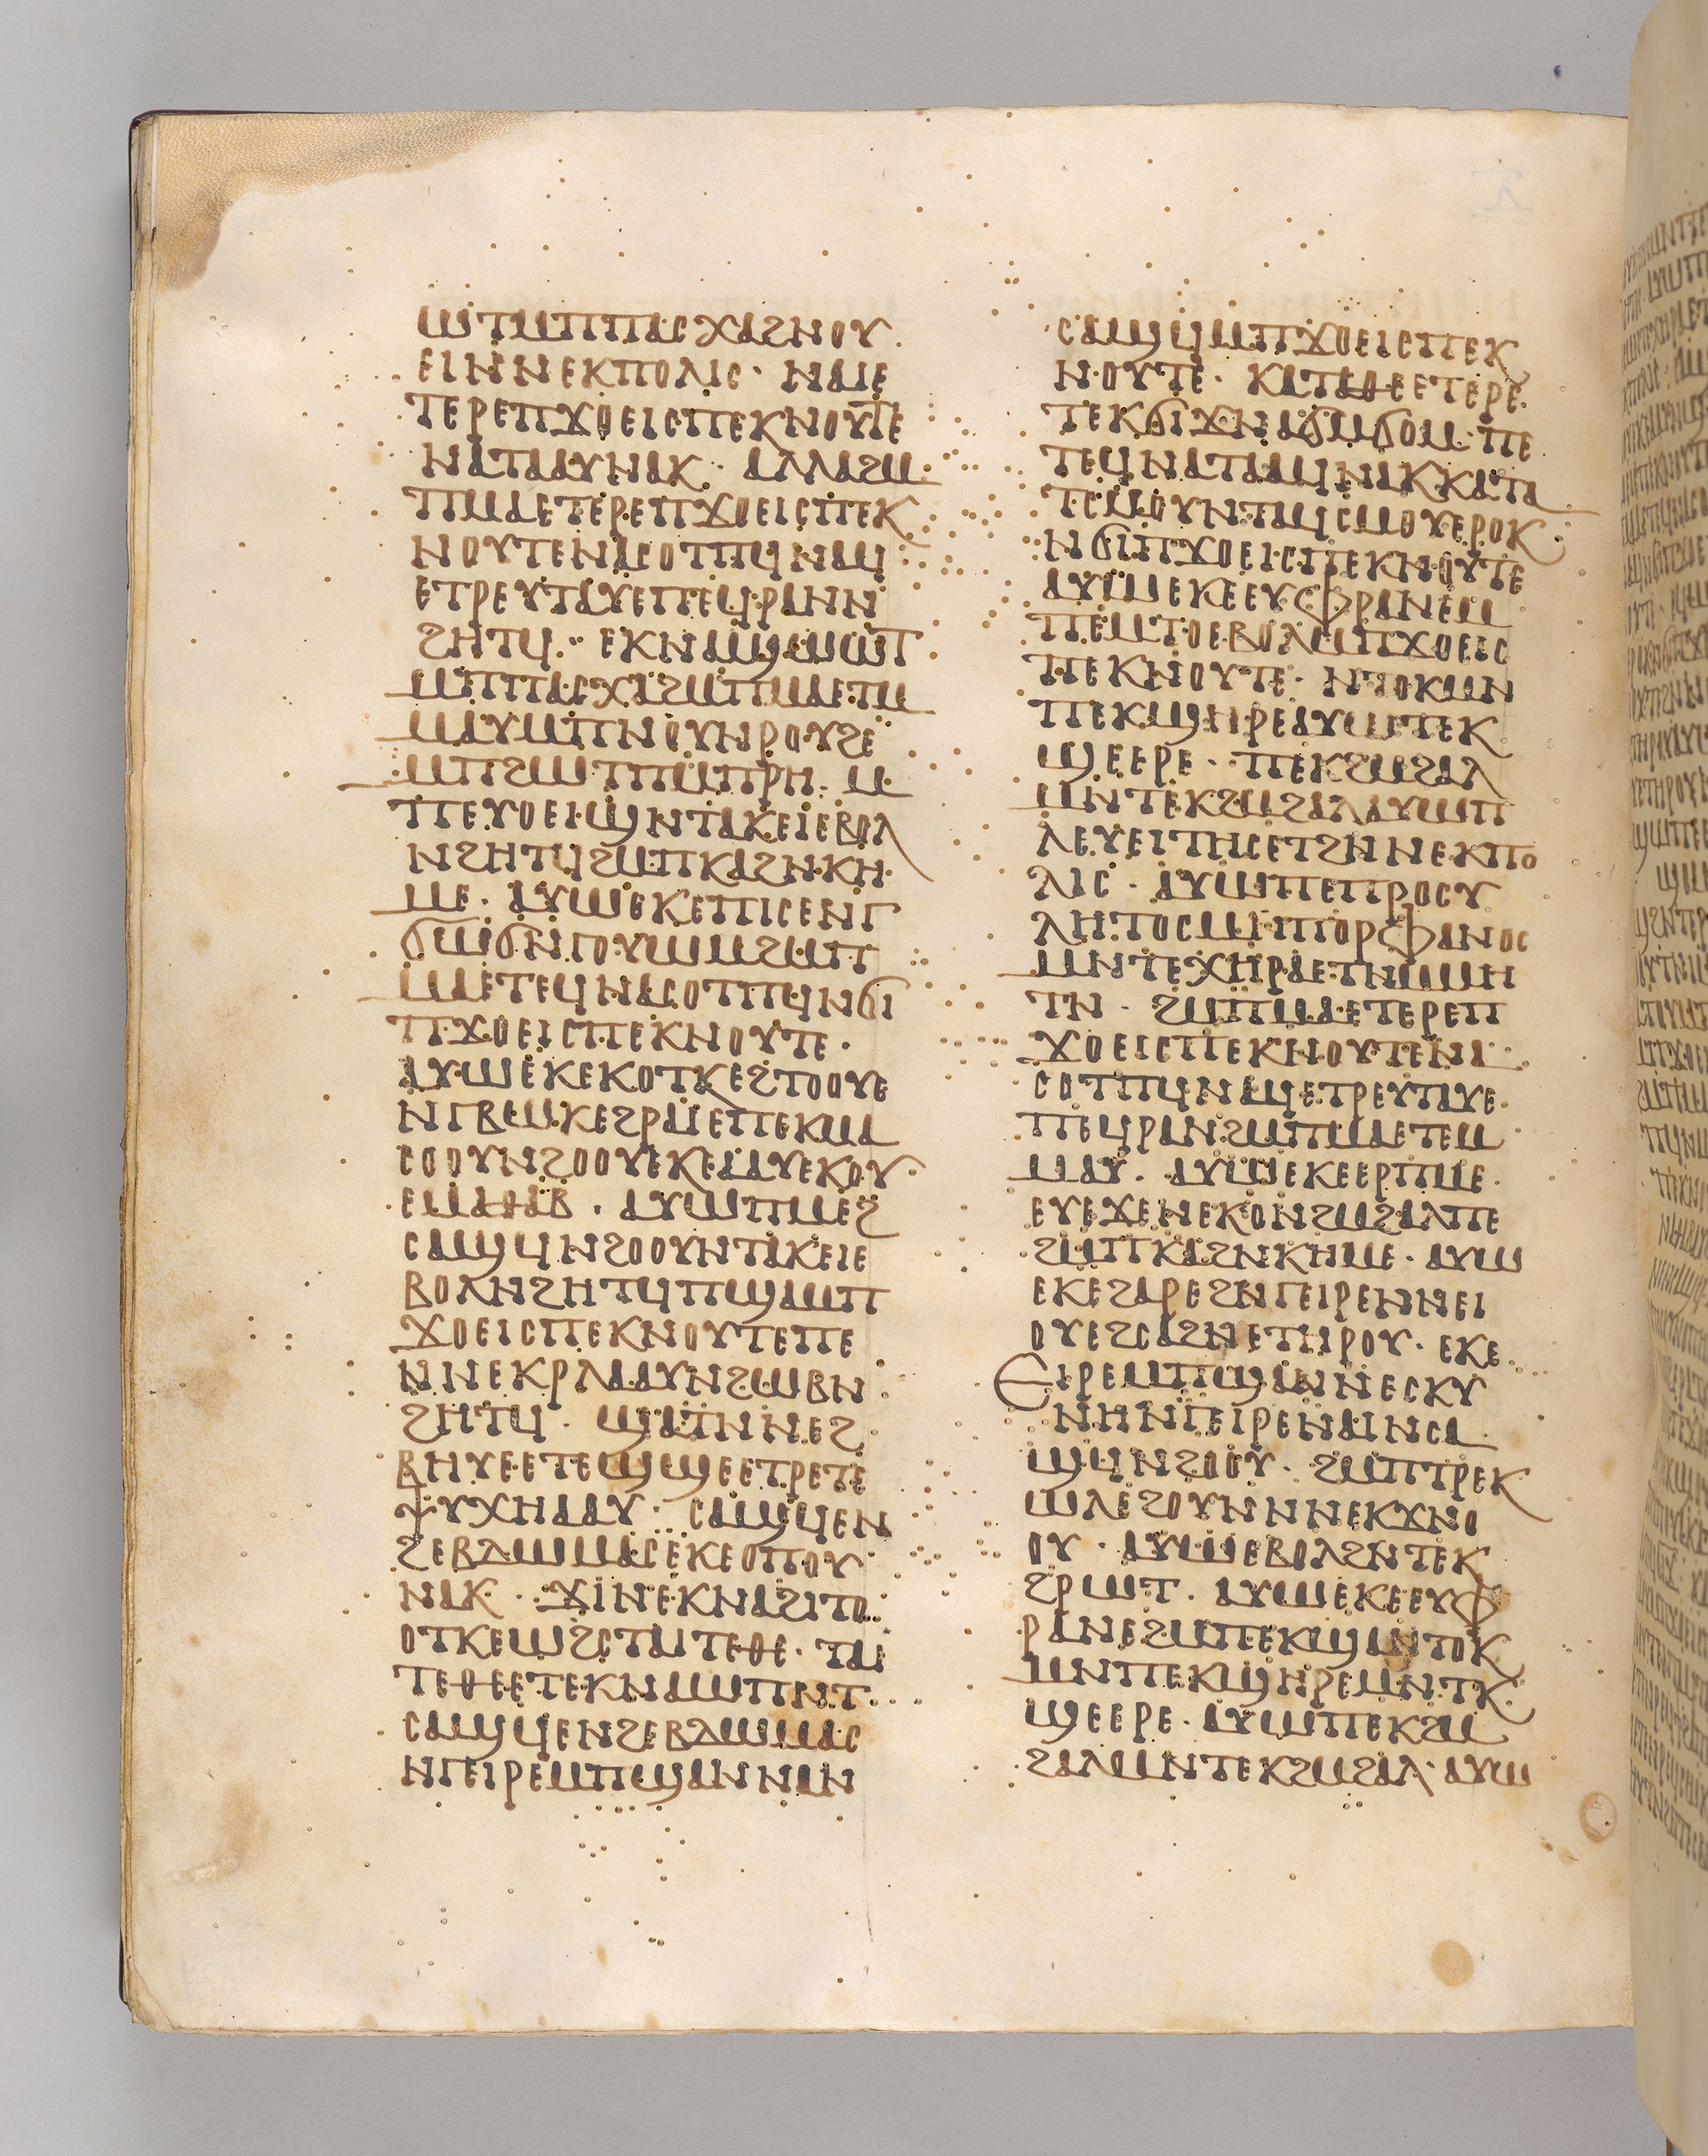 ϣⲱⲧⲙⲡⲡⲁⲥⲭⲁϩⲛⲟⲩ
ⲉⲓⲛⲛⲉⲕⲡⲟⲗⲓⲥ· ⲛⲁⲓⲉ
ⲧⲉⲣⲉⲡϫⲟⲉⲓⲥⲡⲉⲕⲛⲟⲩⲧⲉ
ⲛⲁⲧⲁⲁⲩⲛⲁⲕ· ⲁⲗⲗⲁϩⲙ
ⲡⲙⲁⲉⲧⲉⲣⲉⲡϫⲟⲉⲓⲥⲡⲉⲕ
ⲛⲟⲩⲧⲉⲛⲁⲥⲟⲧⲡϥⲛⲁϥ
ⲉⲧⲣⲉⲩⲧⲁⲩⲉⲡⲉϥⲣⲁⲛⲛ
ϩⲏⲧϥ· ⲉⲕⲛⲁϣⲱⲱⲧ
ⲙⲡⲡⲁⲥⲭⲁϩⲙⲡⲙⲁⲉⲧⲙ
ⲙⲁⲩⲙⲡⲛⲟⲩⲛⲣⲟⲩϩⲉ
ⲙⲡϩⲱⲧⲡⲙⲡⲣⲏ· ⲙ
ⲡⲉⲩⲟⲉⲓϣⲛⲧⲁⲕⲉⲓⲉⲃⲟⲗ
ⲛϩⲏⲧϥϩⲙⲡⲕⲁϩⲛⲕⲏ
ⲙⲉ· ⲁⲩⲱⲉⲕⲉⲡⲓⲥⲉⲛⲅ
ϭⲱϭⲛⲅⲟⲩⲱⲙϩⲙⲡ
ⲙⲁⲉⲧⲉϥⲛⲁⲥⲟⲧⲡϥⲛϭⲓ
ⲡϫⲟⲉⲓⲥⲡⲉⲕⲛⲟⲩⲧⲉ·
ⲁⲩⲱⲉⲕⲉⲕⲟⲧⲕⲉϩⲧⲟⲟⲩⲉ
ⲛⲅⲃⲱⲕⲉϩⲣⲁⲓⲉⲡⲉⲕⲙⲁ
ⲥⲟⲟⲩⲛϩⲟⲟⲩⲉⲕⲉⲁⲁⲩⲉⲕⲟⲩ
ⲉⲙⲁⲑⲁⲃ· ⲁⲩⲱⲡⲙⲉϩ
ⲥⲁϣϥⲛϩⲟⲟⲩⲛⲧⲁⲕⲉⲓⲉ
ⲃⲟⲗⲛϩⲏⲧϥⲡϣⲁⲙⲡ
ϫⲟⲉⲓⲥⲡⲉⲕⲛⲟⲩⲧⲉⲡⲉ
ⲛⲛⲉⲕⲣⲗⲁⲁⲩⲛϩⲱⲃⲛ
ϩⲏⲧϥ· ϣⲁⲧⲛⲛⲉϩ
ⲃⲏⲩⲉⲉⲧⲉϣϣⲉⲉⲧⲣⲉⲧⲉ
ⲯⲩⲭⲏⲁⲁⲩ· ⲥⲁϣϥⲉⲛ
ϩⲉⲃⲇⲱⲙⲁⲥⲉⲕⲉⲟⲡⲟⲩ
ⲛⲁⲕ· ϫⲓⲛⲉⲕⲛⲁϩⲓⲧⲟ
ⲟⲧⲕⲉⲱϩⲥⲧⲁⲓⲧⲉⲑⲉ· ⲧⲁⲓ
ⲧⲉⲑⲉⲉⲧⲉⲕⲛⲁⲱⲡⲛⲧ
ⲥⲁϣϥⲉⲛϩⲉⲃⲇⲱⲙⲁⲥ
ⲛⲅⲉⲓⲣⲉⲙⲡϣⲁⲛⲛⲁⲛ
ⲥⲁϣϥⲙⲡϫⲟⲉⲓⲥⲡⲉⲕ
ⲛⲟⲩⲧⲉ· ⲕⲁⲧⲁⲑⲉⲉⲧⲉⲣⲉ
ⲧⲉⲕϭⲓϫⲛⲁϭⲙϭⲟⲙ· ⲡⲉ
ⲧⲉϥⲛⲁⲧⲁⲁϥⲛⲁⲕⲕⲁⲧⲁ
ⲡⲉⲥⲙⲟⲩⲛⲧⲁϥⲥⲙⲟⲩⲉⲣⲟⲕ
ⲛϭⲓⲡϫⲟⲉⲓⲥⲡⲉⲕⲛⲟⲩⲧⲉ
ⲁⲩⲱⲉⲕⲉⲉⲩⲫⲣⲁⲛⲉⲙ
ⲡⲉⲙⲧⲟⲉⲃⲟⲗⲙⲡϫⲟⲉⲓⲥ
ⲡⲉⲕⲛⲟⲩⲧⲉ· ⲛⲧⲟⲕⲙⲛ
ⲡⲉⲕϣⲏⲣⲉⲁⲩⲱⲧⲉⲕ
ϣⲉⲉⲣⲉ· ⲡⲉⲕϩⲙϩⲁⲗ
ⲙⲛⲧⲉⲕϩⲙϩⲁⲗⲁⲩⲱⲡ
ⲗⲉⲩⲉⲓⲧⲏⲥⲉⲧϩⲛⲛⲉⲕⲡⲟ
ⲗⲓⲥ· ⲁⲩⲱⲡⲉⲡⲣⲟⲥⲩ
ⲗⲏⲧⲟⲥⲙⲛⲡⲟⲣⲫⲁⲛⲟⲥ
ⲙⲛⲧⲉⲭⲏⲣⲁⲉⲧⲛⲙⲙⲏ
ⲧⲛ· ϩⲙⲡⲙⲁⲉⲧⲉⲣⲉⲡ
ϫⲟⲉⲓⲥⲡⲉⲕⲛⲟⲩⲧⲉⲛⲁ
ⲥⲟⲧⲡϥⲛⲁϥⲉⲧⲣⲉⲩⲧⲁⲩⲉ
ⲡⲉϥⲣⲁⲛϩⲙⲡⲙⲁⲉⲧⲉⲙ
ⲙⲁⲩ· ⲁⲩⲱⲉⲕⲉⲉⲣⲡⲙⲉ·
ⲉⲩⲉϫⲉⲛⲉⲕⲟⲛϩⲙϩⲁⲗⲡⲉ
ϩⲙⲡⲕⲁϩⲛⲕⲏⲙⲉ· ⲁⲩⲱ
ⲉⲕⲉϩⲁⲣⲉϩⲛⲅⲉⲓⲣⲉⲛⲛⲉⲓ
ⲟⲩⲉϩⲥⲁϩⲛⲉⲧⲏⲣⲟⲩ· ⲉⲕⲉ
ⲉⲓⲣⲉⲙⲡϣⲁⲛⲛⲉⲥⲕⲩ
ⲛⲏⲛⲅⲉⲓⲣⲉⲛⲁⲓⲛⲥⲁ
ϣϥⲛϩⲟⲟⲩ· ϩⲙⲡⲧⲣⲉⲕ
ⲱⲗⲉϩⲟⲩⲛⲛⲛⲉⲕϫⲛⲟ
ⲟⲩ· ⲁⲩⲱⲉⲃⲟⲗϩⲛⲧⲉⲕ
ϩⲣⲱⲧ· ⲁⲩⲱⲉⲕⲉⲉⲩⲫ
ⲣⲁⲛⲉϩⲙⲡⲉⲕϣⲁⲛⲧⲟⲕ
ⲙⲛⲡⲉⲕϣⲏⲣⲉⲙⲛⲧⲕ
ϣⲉⲉⲣⲉ· ⲁⲩⲱⲡⲉⲕϩⲙ
ϩⲁⲗⲙⲛⲧⲉⲕϩⲙϩⲁⲗ· ⲁⲩⲱ